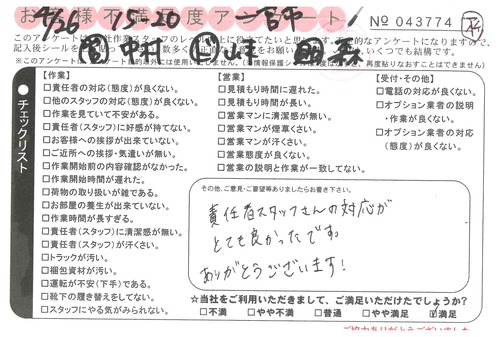 お客様不満足度アンケート
4/26 15-20 一宮中
No 043774
中村
記入後シールを
※このアンケートは
再度貼りなおすことはできません)
チェックリスト
【作業】
□責任者の対応(態度)が良くない。
□他のスタッフの対応(態度)が良くない。
□作業を見ていて不安がある。
□責任者(スタッフ)に好感が持てない。
□お客様への挨拶が出来ていない。
□ご近所への挨拶・気遣いが無い。
□作業開始前の内容確認がなかった。
□作業開始時間が遅れた。
□荷物の取り扱いが雑である。
□お部屋の養生が出来ていない。
□作業時間が長すぎる。
□責任者(スタッフ)に清潔感が無い。
□責任者(スタッフ)が汗くさい。
□トラックが汚い。
□梱包資材が汚い。
□運転が不安(下手)である。
□靴下の履き替えをしてない。
□スタッフにやる気がみられない。
【営業】
□見積もり時間に遅れた。
□見積もり時間が長い。
□営業マンに清潔感が無い。
□営業マンが煙草くさい。
□営業マンが汗くさい。
□営業態度が良くない。
□営業の説明と作業が一致してない。
【受付・その他】
□電話の対応が良くない。
□オプション業者の説明
・作業が良くない。
□オプション業者の対応
(態度)が良くない。
その他、ご意見・ご要望等ありましたらお書き下さい。
責任者スタッフさんの対応が
とても良かったです。
ありがとうございます!
☆当社をご利用いただきまして、ご満足いただけたでしょうか?
□不満 □やや不満 □普通 □やや満足 ☑満足
ご協力ありがとうございました